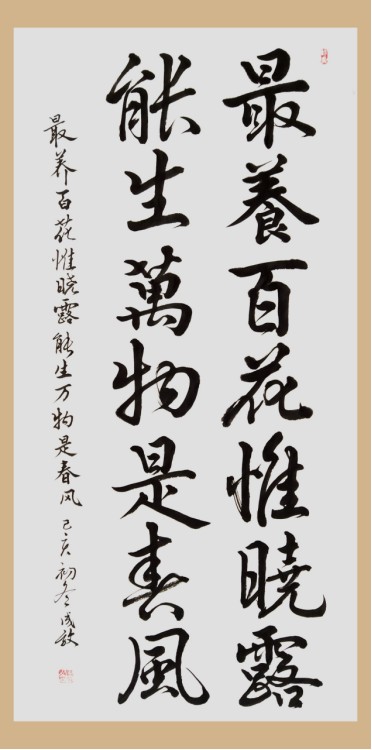 最養百花惟曉露
能生萬物是春風
最养百花惟晓露能生万物是春风 己亥初冬成敏